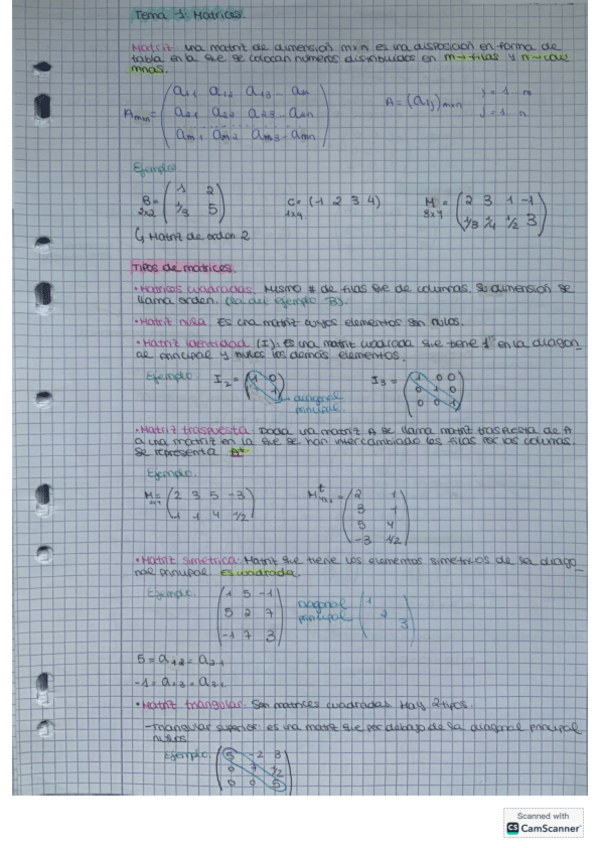 Tema 1: Matrices.
Matriz: una matriz de dimensión mxn es una disposición en forma de
tabla en la que se colocan números distribuidos en m→filas y n→colu
mnas.
Amxn = ( a11 a12 a13 ... an
a21 a22 a23 ... a2n
am1 am2 am3 ... amn )
A = (aij)mxn
j = 1 n
Ejemplo
B = ( 1 2
2x2 1/3 5 )
C = (-1 2 3 4)
1x4
M = ( 2 3 1 -1
1/3 1/4 1/2 3 )
↳ Matriz de orden 2
Tipos de matrices.
• Matrices cuadradas. Mismo # de filas que de columnas, su dimensión se
llama orden. (la del ejemplo B).
• Matriz nula. Es una matriz cuyos elementos son nulos.
• Matriz identidad (I): es una matriz cuadrada que tiene 1 en la diagon_
al principal y nulos los demás elementos.
Ejemplo: I2 = ( 1 0
0 1 )
diagonal
principal.
I3 = ( 1 0 0
0 1 0
0 0 1 )
• Matriz traspuesta. Dada una matriz A se llama matriz traspuesta de A
a una matriz en la que se han intercambiado las filas por las columnas.
Se representa At.
Ejemplo.
M = ( 2 3 5 -3
1 1 4 1/2 )
Mt = ( 2 1
3 1
5 4
-3 1/2 )
• Matriz simétrica. Matriz que tiene los elementos simétricos de la diago_
nal principal. Es cuadrada.
Ejemplo. ( 1 5 -1
5 2 7
-1 7 3 )
diagonal
principal
( 1
2
3 )
5 = a12 = a21
-1 = a13 = a31
• Matriz triangular. Son matrices cuadradas. Hay 2 tipos.
-Triangular superior: es una matriz que por debajo de la diagonal principal
nulos
Ejemplo. ( 5 -2 3
0 7 1/2
0 0 5 )
Scanned with
CS CamScanner